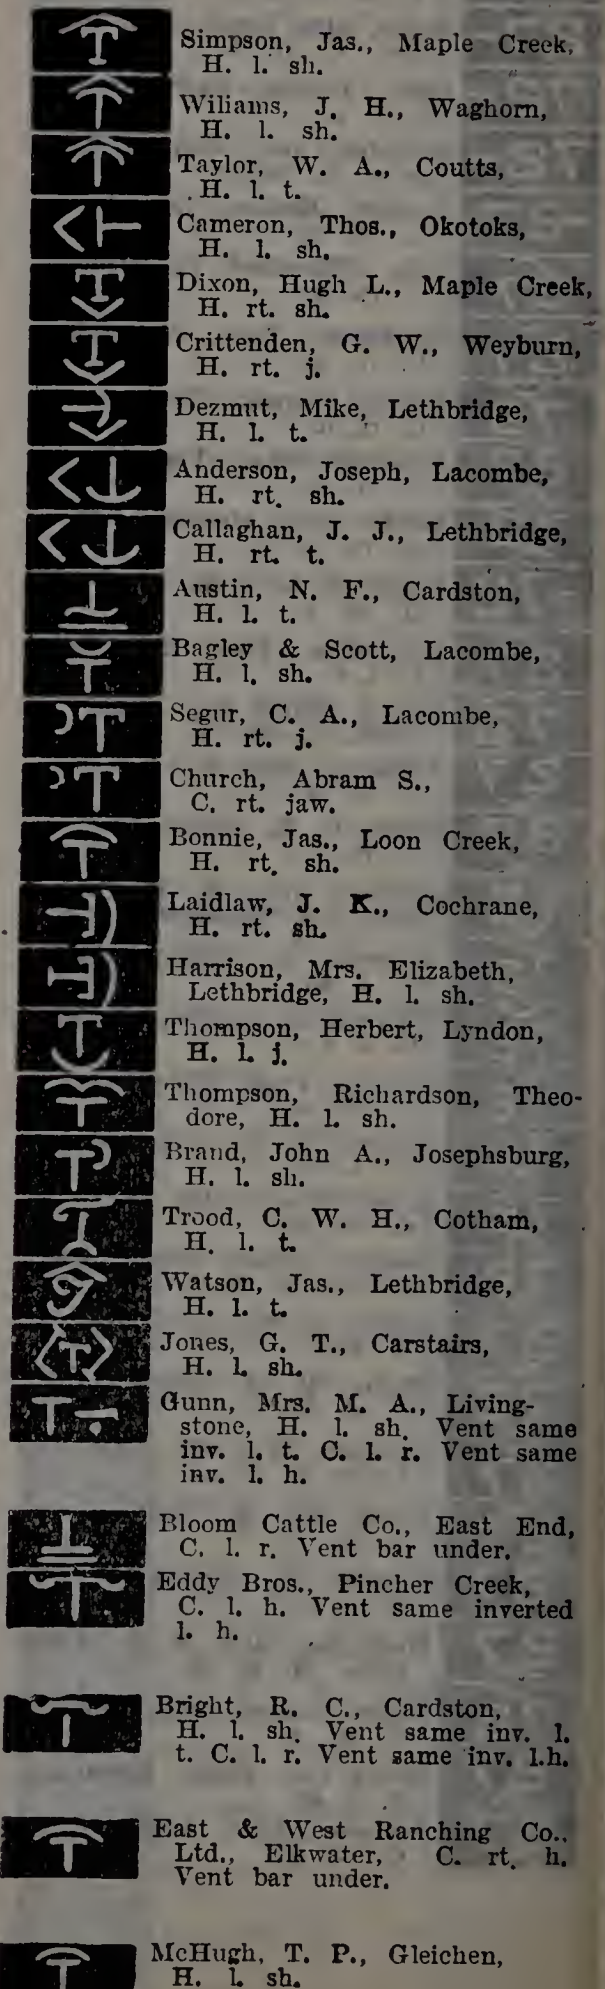 Simpson, Jas., Maple Creek,
H. l. sh.
Wiliams, J. H., Waghorn,
H. l. sh.
Taylor, W. A., Coutts,
H. l. t.
Cameron, Thos., Okotoks,
H. l. sh.
Dixon, Hugh L., Maple Creek,
H. rt. sh.
Crittenden, G. W., Weyburn,
H. rt. j.
Dezmut, Mike, Lethbridge,
H. l. t.
Anderson, Joseph, Lacombe,
H. rt. sh.
Callaghan, J. J., Lethbridge,
H. rt. t.
Austin, N. F., Cardston,
H. l. t.
Bagley & Scott, Lacombe,
H. l. sh.
Segur, C. A., Lacombe,
H. rt. j.
Church, Abram S.,
C. rt. jaw.
Bonnie, Jas., Loon Creek,
H. rt. sh.
Laidlaw, J. K., Cochrane,
H. rt. sh.
Harrison, Mrs. Elizabeth,
Lethbridge, H. l. sh.
Thompson, Herbert, Lyndon,
H. l. j.
Thompson, Richardson, Theo-
dore, H. l. sh.
Brand, John A., Josephsburg,
H. l. sh.
Trood, C. W. H., Cotham,
H. l. t.
Watson, Jas., Lethbridge,
H. l. t.
Jones, G. T., Carstairs,
H. l. sh.
Gunn, Mrs. M. A., Living-
stone, H. l. sh. Vent same
inv. l. t. C. l. r. Vent same
inv. l. h.
Bloom Cattle Co., East End,
C. l. r. Vent bar under.
Eddy Bros., Pincher Creek,
C. l. h. Vent same inverted
l. h.
Bright, R. C., Cardston,
H. l. sh. Vent same inv. l.
t. C. l. r. Vent same inv. l.h.
East & West Ranching Co.,
Ltd., Elkwater, C. rt. h.
Vent bar under.
McHugh, T. P., Gleichen,
H. l. sh.